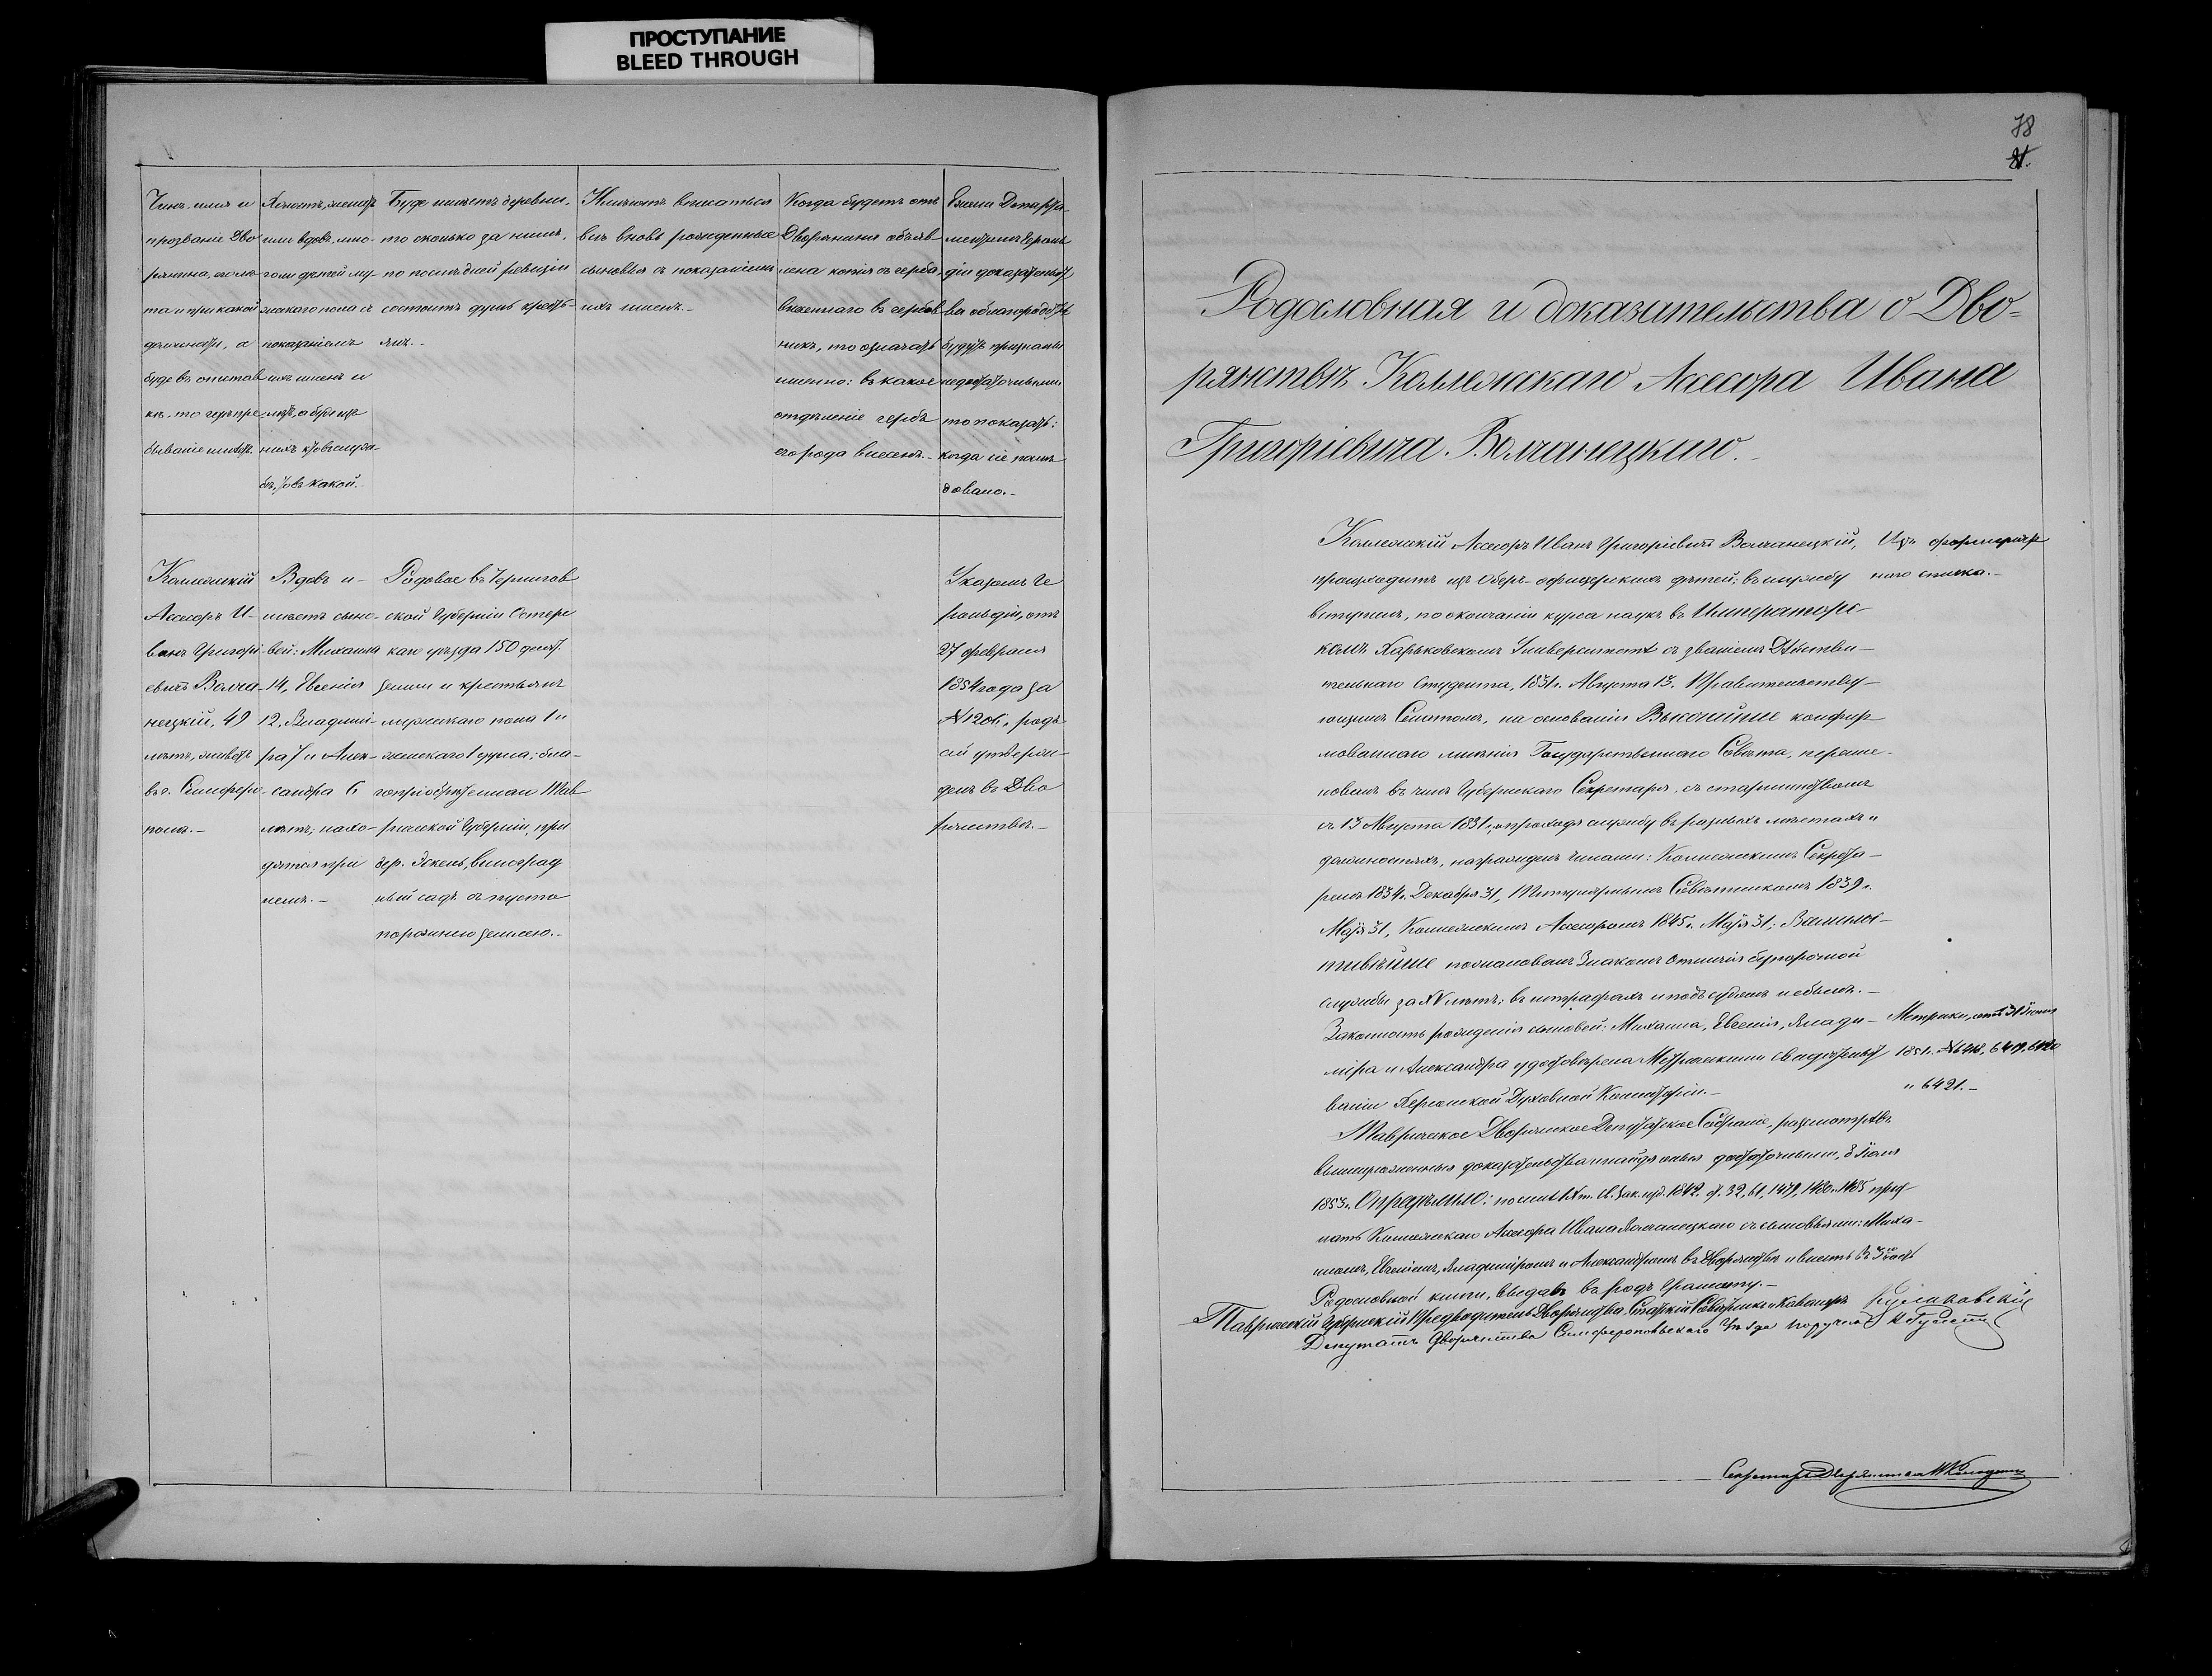 ПРОСТУПАНИЕ
BLEED THROUGH
Чинъ, имя и
прозваніе Дво
рянина, его лѣ
та и при какой
должности, а
буде въ отстав
кѣ, то гдѣ пре
бываніе имѣетъ.
Холостъ, женатъ
или вдовъ, мно-
го ли дѣтей му-
жескаго пола съ
показаніемъ
ихъ именъ и
лѣтъ, а буде изъ
нихъ кто въ служ-
бѣ, то въ какой.
Буде имѣетъ деревни,
то сколько за нимъ,
по послѣдней ревизіи
состоитъ душъ кресть-
янъ.-
Имѣютъ вписаться
всѣ вновь рожденные
сыновья съ показаніемъ
ихъ именъ.-
Когда будетъ отъ
Дворянина объяв
лена копія съ герба,
внесеннаго въ гербов
никъ, то означать
именно: въ какое
отдѣленіе гербъ
его рода внесенъ.-
Если Департа-
ментомъ Героль
діи доказательст
ва о благородствѣ
будутъ признаны
недостаточными,
то показать:
когда сіе послѣ
довало.-
Коллежскій
Ассесоръ И-
ванъ Григорі-
евичъ Волча-
нецкій, 49
лѣтъ, живетъ
въ г. Симферо-
полѣ.-
Вдовъ и-
имѣетъ сыно-
вей: Михаила
14, Евгенія
12, Владимі-
ра 7 и Алек-
сандра 6
лѣтъ; нахо-
дятся при
немъ.-
Родовое въ Чернигов
ской Губерніи Остерс
каго уѣзда 150 десят.
земли и крестьянъ
мужескаго пола 1 и
женскаго 1 душа; бла-
гопріобрѣтенное Тав
рической Губерніи, при
дер. Эскель, виноград
ный садъ съ пусто
порожнею землею.-
Указомъ Ге
рольдіи, отъ
27 февраля
1854 года за
№ 1206, родъ
сей утверж-
денъ въ Дво
рянствѣ.-
78
81.
Родословная и доказательства о Дво=
рянствѣ Коллежскаго Ассесора Ивана
Григоріевича Волчанецкаго.-
Коллежскій Ассесоръ Иванъ Григоріевичъ Волчанецкій,
происходитъ изъ Оберъ-офицерскихъ дѣтей; въ службу
вступилъ, по окончаніи курса наукъ въ Императорс-
комъ Харьковскомъ Университетѣ съ званіемъ Дѣйстви-
тельнаго Студента, 1831 г. Августа 13. Правительству-
ющимъ Сенатомъ, на основаніи Высочайше конфир
мованнаго мнѣнія Государственнаго Совѣта, переиме-
нованъ въ чинъ Губернскаго Секретаря, съ старшинствомъ
съ 13 Августа 1831 г., и проходя службу въ разныхъ мѣстахъ и
должностяхъ, награжденъ чинами: Коллежскимъ Секрета-
ремъ 1834 г. Декабря 31, Титулярнымъ Совѣтникомъ 1839 г.
Мая 31, Коллежскимъ Ассесоромъ 1845 г. Мая 31; Всемилос-
тивѣйше пожалованъ Знакомъ отличія безпорочной
службы за XV лѣтъ; въ штрафахъ и подъ судомъ не былъ.-
Изъ формуляр
наго списка.-
Законность рожденія сыновей: Михаила, Евгенія, Влади-
міра и Александра удостовѣрена Метрическими свидѣтельст
вами Херсонской Духовной Консисторіи.-
Метрики, отъ 31
1851 г. № 6418, 6419, 6420
и 6421.-
Таврическое Дворянское Депутатское Собраніе, разсмотрѣвъ
вышеизложенныя доказательства и найдя оныя достаточными, 8
1853 г. Опредѣлило: по силѣ IX т. Св. Зак. изд. 1842 г. ст. 32, 61, 1479, 1480 и 1485 приз
нать Коллежскаго Ассесора Ивана Волчанецкаго съ сыновьями: Миха-
иломъ, Евгеніемъ, Владиміромъ и Александромъ въ Дворянствѣ и внесть въ 3ю часть
Родословной книги, выдавъ въ родъ Грамоту.-
Таврическій Губернскій Предводитель Дворянства, Статскій Совѣтникъ и Кавалеръ
Депутатъ Дворянства Симферопольскаго Уѣзда Поручикъ
Секретарь Дворянства